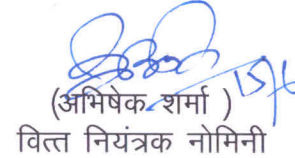 15/6
(अभिषेक शर्मा )
वित्त नियंत्रक नोमिनी